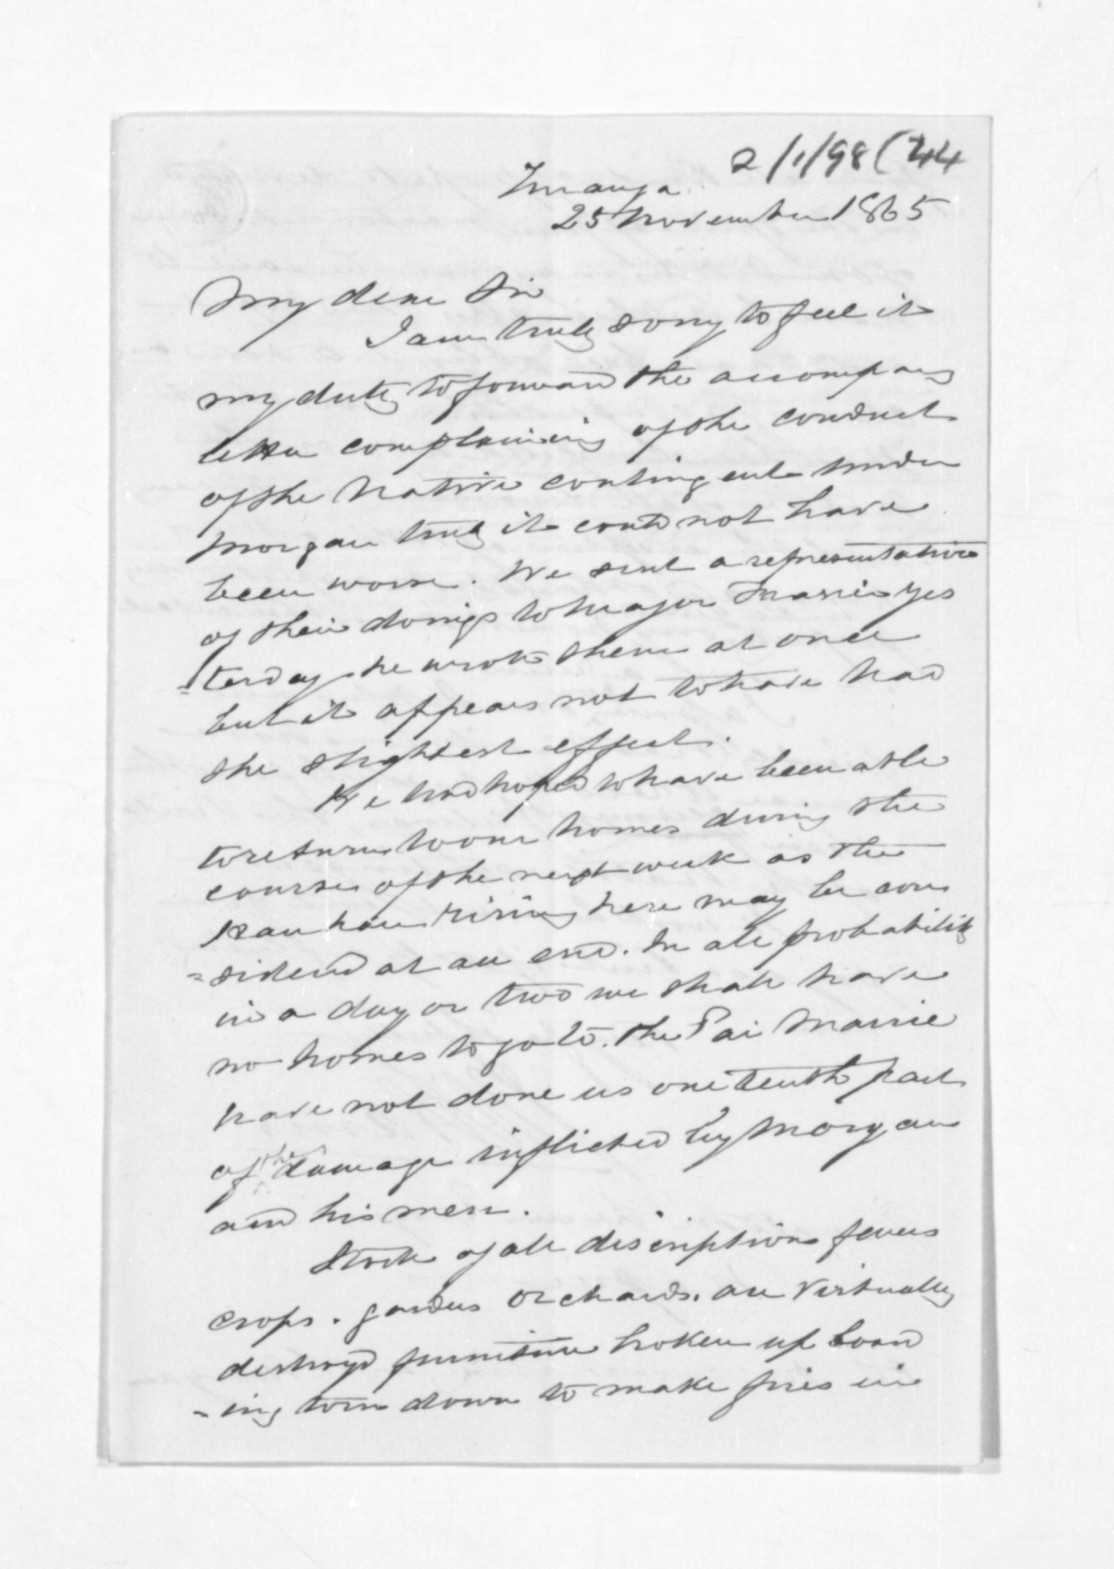 2/1/98 (44
Turanga
25 November 1865
My dear Sir
I am truly sorry to feel it
my duty to forward the accompany
letter complaining of the conduct
of the Native contingent under
Morgan truly it could not have
been worse. We sent a representative
of their doings to Major Frasier yes
=terday he wrote them at once
but it appears not to have had
the slightest effect.
We had hoped to have been able
to return to our homes during the
course of the next week as the
Hau hau rising here may be con
=sidered at an end. In all probability
in a day or two we shall have
no homes to go to. The Pai Marrie
have not done us one tenth part
of the damage inflicted by Morgan
and his men.
Stock of all discription fences
crops. gardens orchards. are virtually
destroyd furniture broken up board
-ing torn down to make fires in